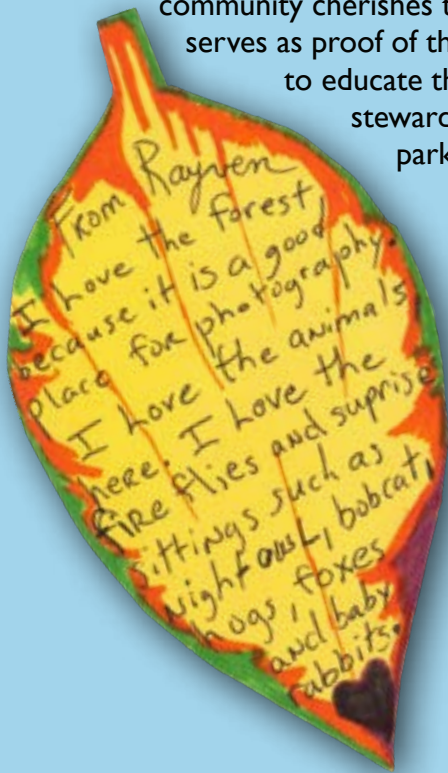 community cherishes t
serves as proof of th
to educate th
steward
park
From Rayven
I Love the forest
because it is a good
place for photography.
I Love the animals
here. I Love the
fire flies and suprise
sittings such as
night owl, bobcat,
hogs, foxes
and baby
rabbits.